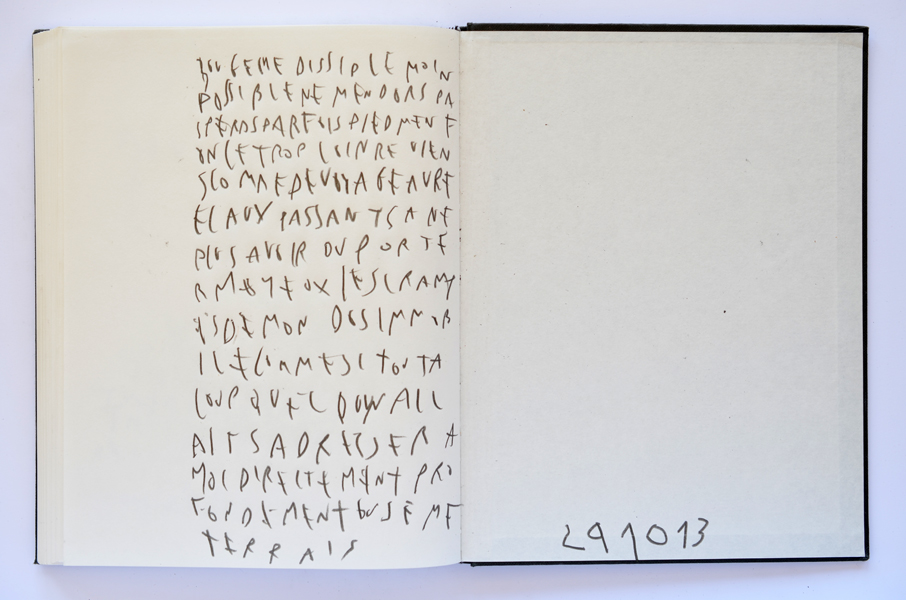 BOUGEME DISSIPLE MOIN
POSSIBLE NE MENDORS PA
SPERDSPARFOISPIEDMENF
ONCETROPLOINREVIEN
SCOMMEDEVOYAGEAVRE
CLAUXPASSANTSANE
PLUSAVOIRDUPORTE
RMESYEUX LESCRAMP
ESDEMON DOSIMMOB
ILECOMMESI TOUTA
COUPQUELQUNALL
AITSADRESSERA
MOIDIRECTEMENT PRO
FONDEMENTOUSEME
TERRAIS
291013